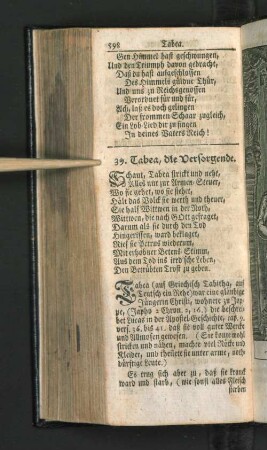 598 Tabea.
Gen Himmel hast geschwungen,
Und den Triumph davon gebracht,
Daß du hast aufgeschlossen
Des Himmels güldne Thür,
Und uns zu Reichsgenossen
Verordnet für und für,
Ach, laß es doch gelingen
Der frommen Schaar zugleich,
Ein Lob-Lied dir zu singen
In deines Vaters Reich!
39. Tabea, die Versorgende.
Schaut, Tabea strickt und neht,
Alles nur zur Armen-Steuer,
Wo sie gehet, wo sie stehet,
Hält das Volck sie werth und theuer,
Sie halff Wittwen in der Noth,
Wittwen, die nach GOtt gefraget,
Darum als sie durch den Tod
Hingerissen, ward beklaget,
Rief sie Petrus wiederum,
Mit erhobner Betens-Stimm,
Aus dem Tod ins irrd'sche Leben,
Den Betrübten Trost zu geben.
Tabea (auf Griechisch Tabitha, auf
Teutsch ein Rehe) war eine gläubige
Jüngerin Christi, wohnete zu Jop-
pe, (Japho 2 Chron. 2, 16.) die beschrei-
bet Lucas in der Apostel-Geschichte, cap. 9.
vers. 36. bis 41. daß sie voll guter Werck
und Allmosen gewesen. (Sie konte wohl
stricken und nähen, machte viel Röcke und
Kleider, und theilete sie unter arme, noth-
dürfftige Leute.)
Es trug sich aber zu, daß sie kranck
ward und starb, (wie sonst alles Fleisch
sterben